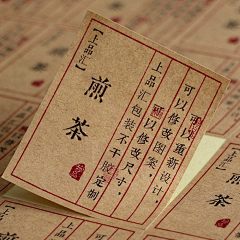 可以重新设计，
可以修改图案，
可以修改尺寸，
上品汇包装不干胶定制
【上品汇】
煎茶